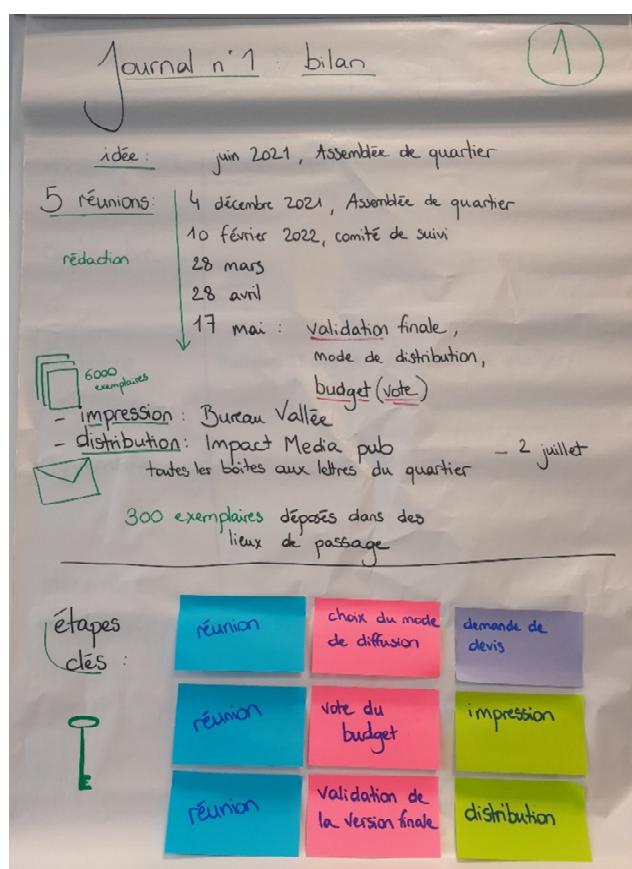 Journal n°1 : bilan
1
idée : juin 2021, Assemblée de quartier
5 réunions: 4 décembre 2021, Assemblée de quartier
10 février 2022, comité de suivi
rédaction
28 mars
28 avril
17 mai : validation finale,
mode de distribution,
budget (vote)
6000
exemplaires
- impression : Bureau Vallée
- distribution : Impact Media pub - 2 juillet
toutes les boîtes aux lettres du quartier
300 exemplaires déposés dans des
lieux de passage
étapes
clés :
réunion
choix du mode
de diffusion
demande de
devis
réunion
vote du
budget
impression
réunion
validation de
la version finale
distribution